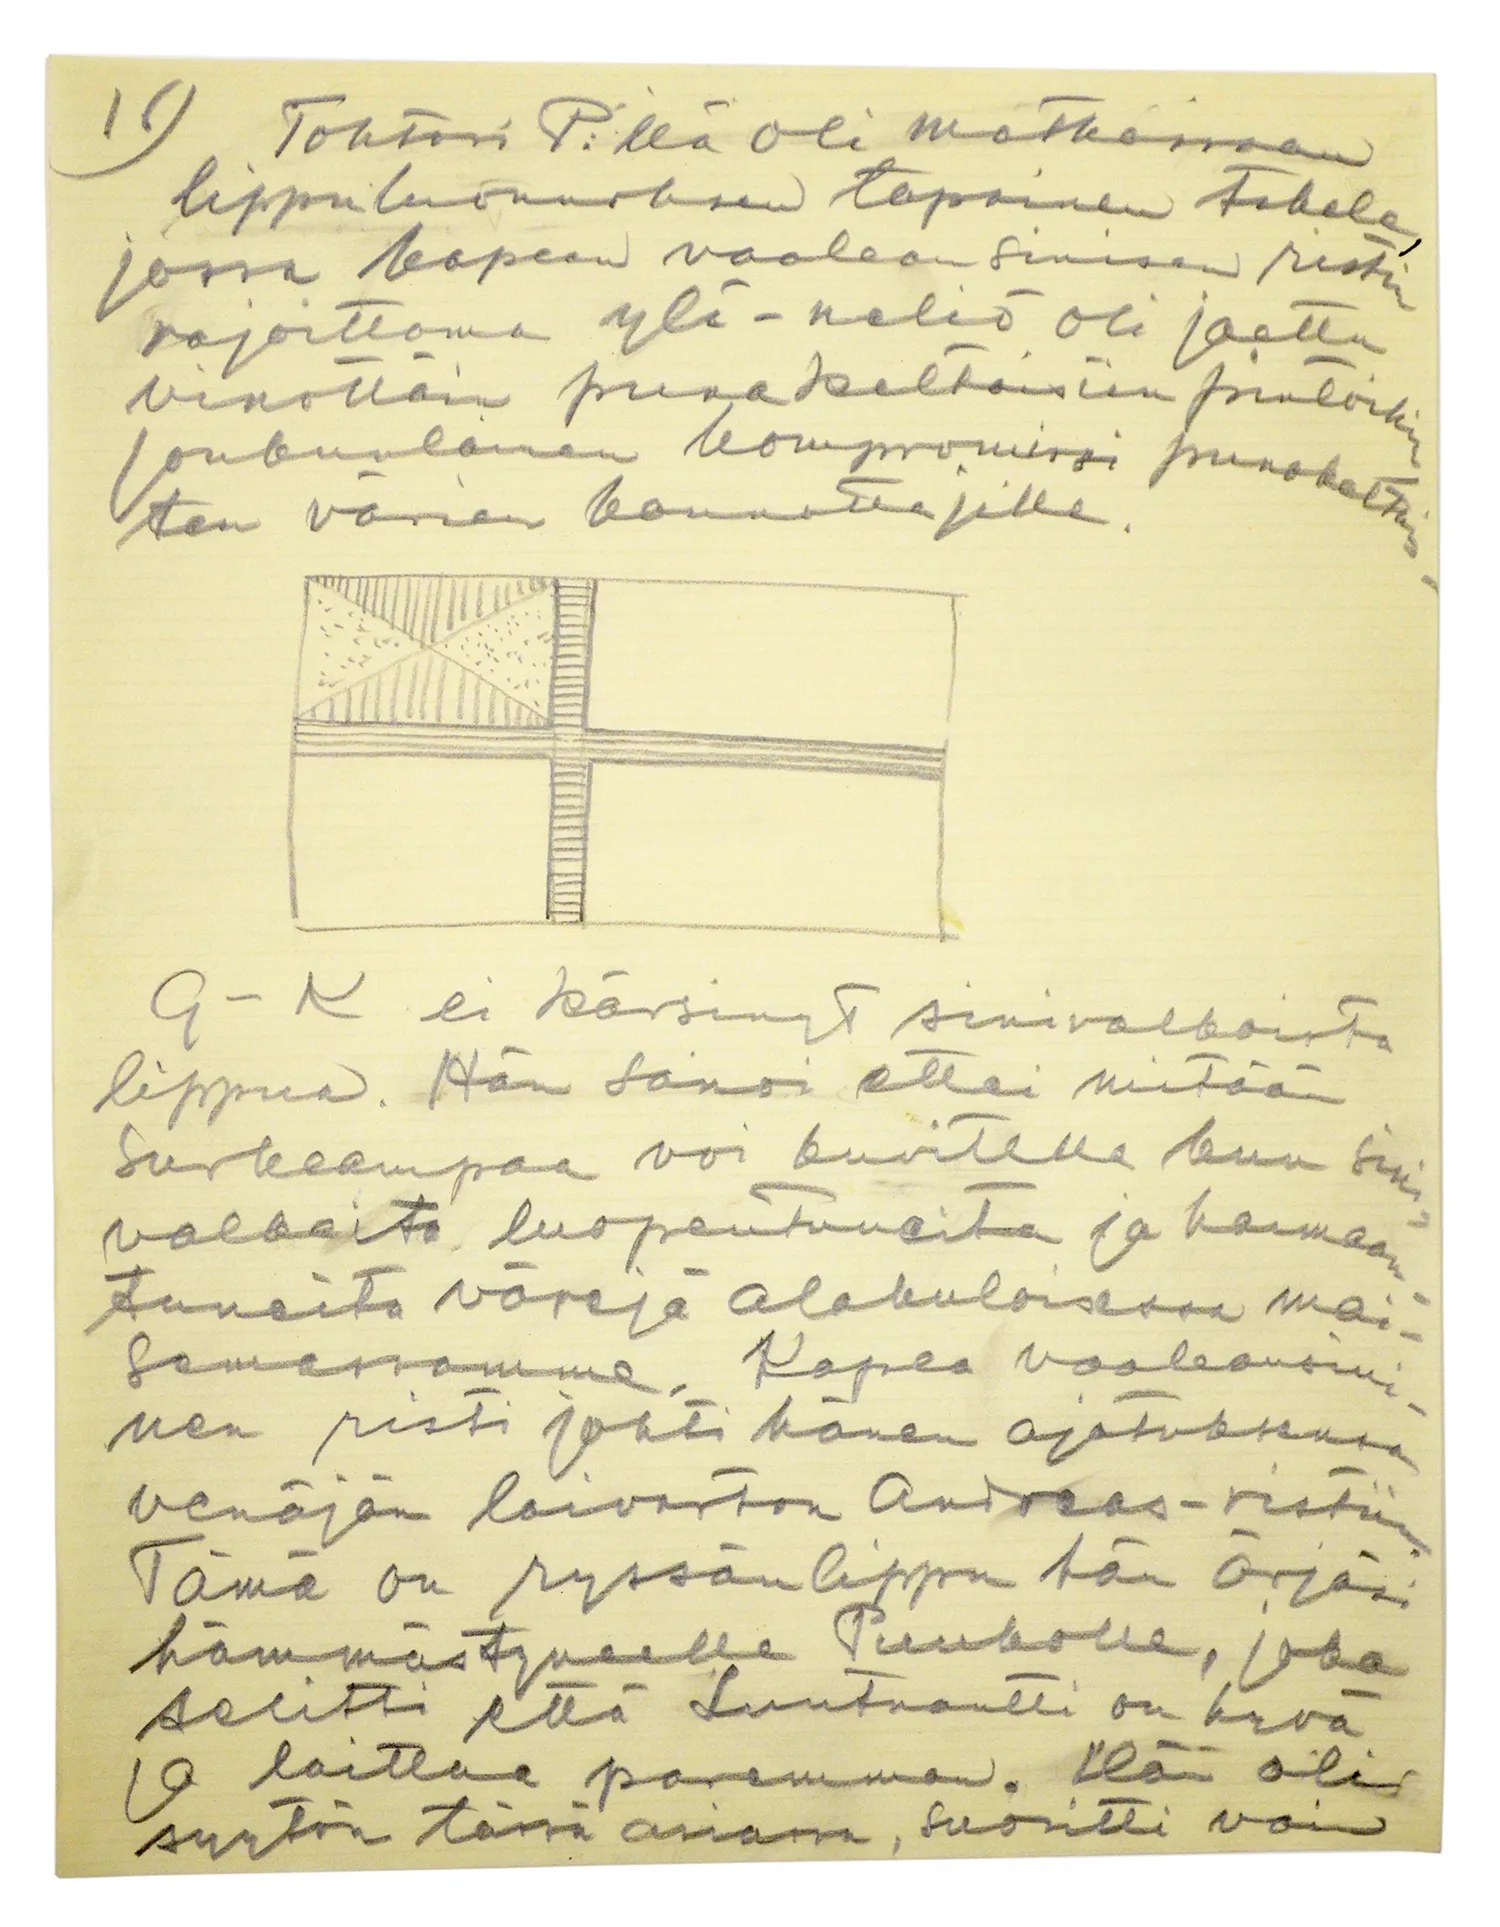 Tohtori P:llä oli matkassaan
lippuluonnoksen tapainen tekele,
jossa kapean vaaleansinisen ristin
rajoittama ylä-neliö oli jaettu
vinottäin punakeltaisiin pintoihin
jonkunlainen kompromissi punakeltais-
ten värien kannattajille.
G-K ei kärsinyt sinivalkoista
lippua. Hän sanoi ettei mitään
surkeampaa voi kuvitella kuin sini-
valkaita luopeutuneita ja harmaan-
tuneita värejä alakuloisessa mai-
semassamme. Kapea vaaleansini-
nen risti johti hänen ajatuksensa
venäjän laivaston Andreas-ristiin
Tämä on ryssän lippu hän ärjäsi
hämmästyneelle Puukolle, joka
selitti että Luutnantti on hyvä
ja laittaa paremman. Hän oli
syytön tässä asiassa, suoritti vain